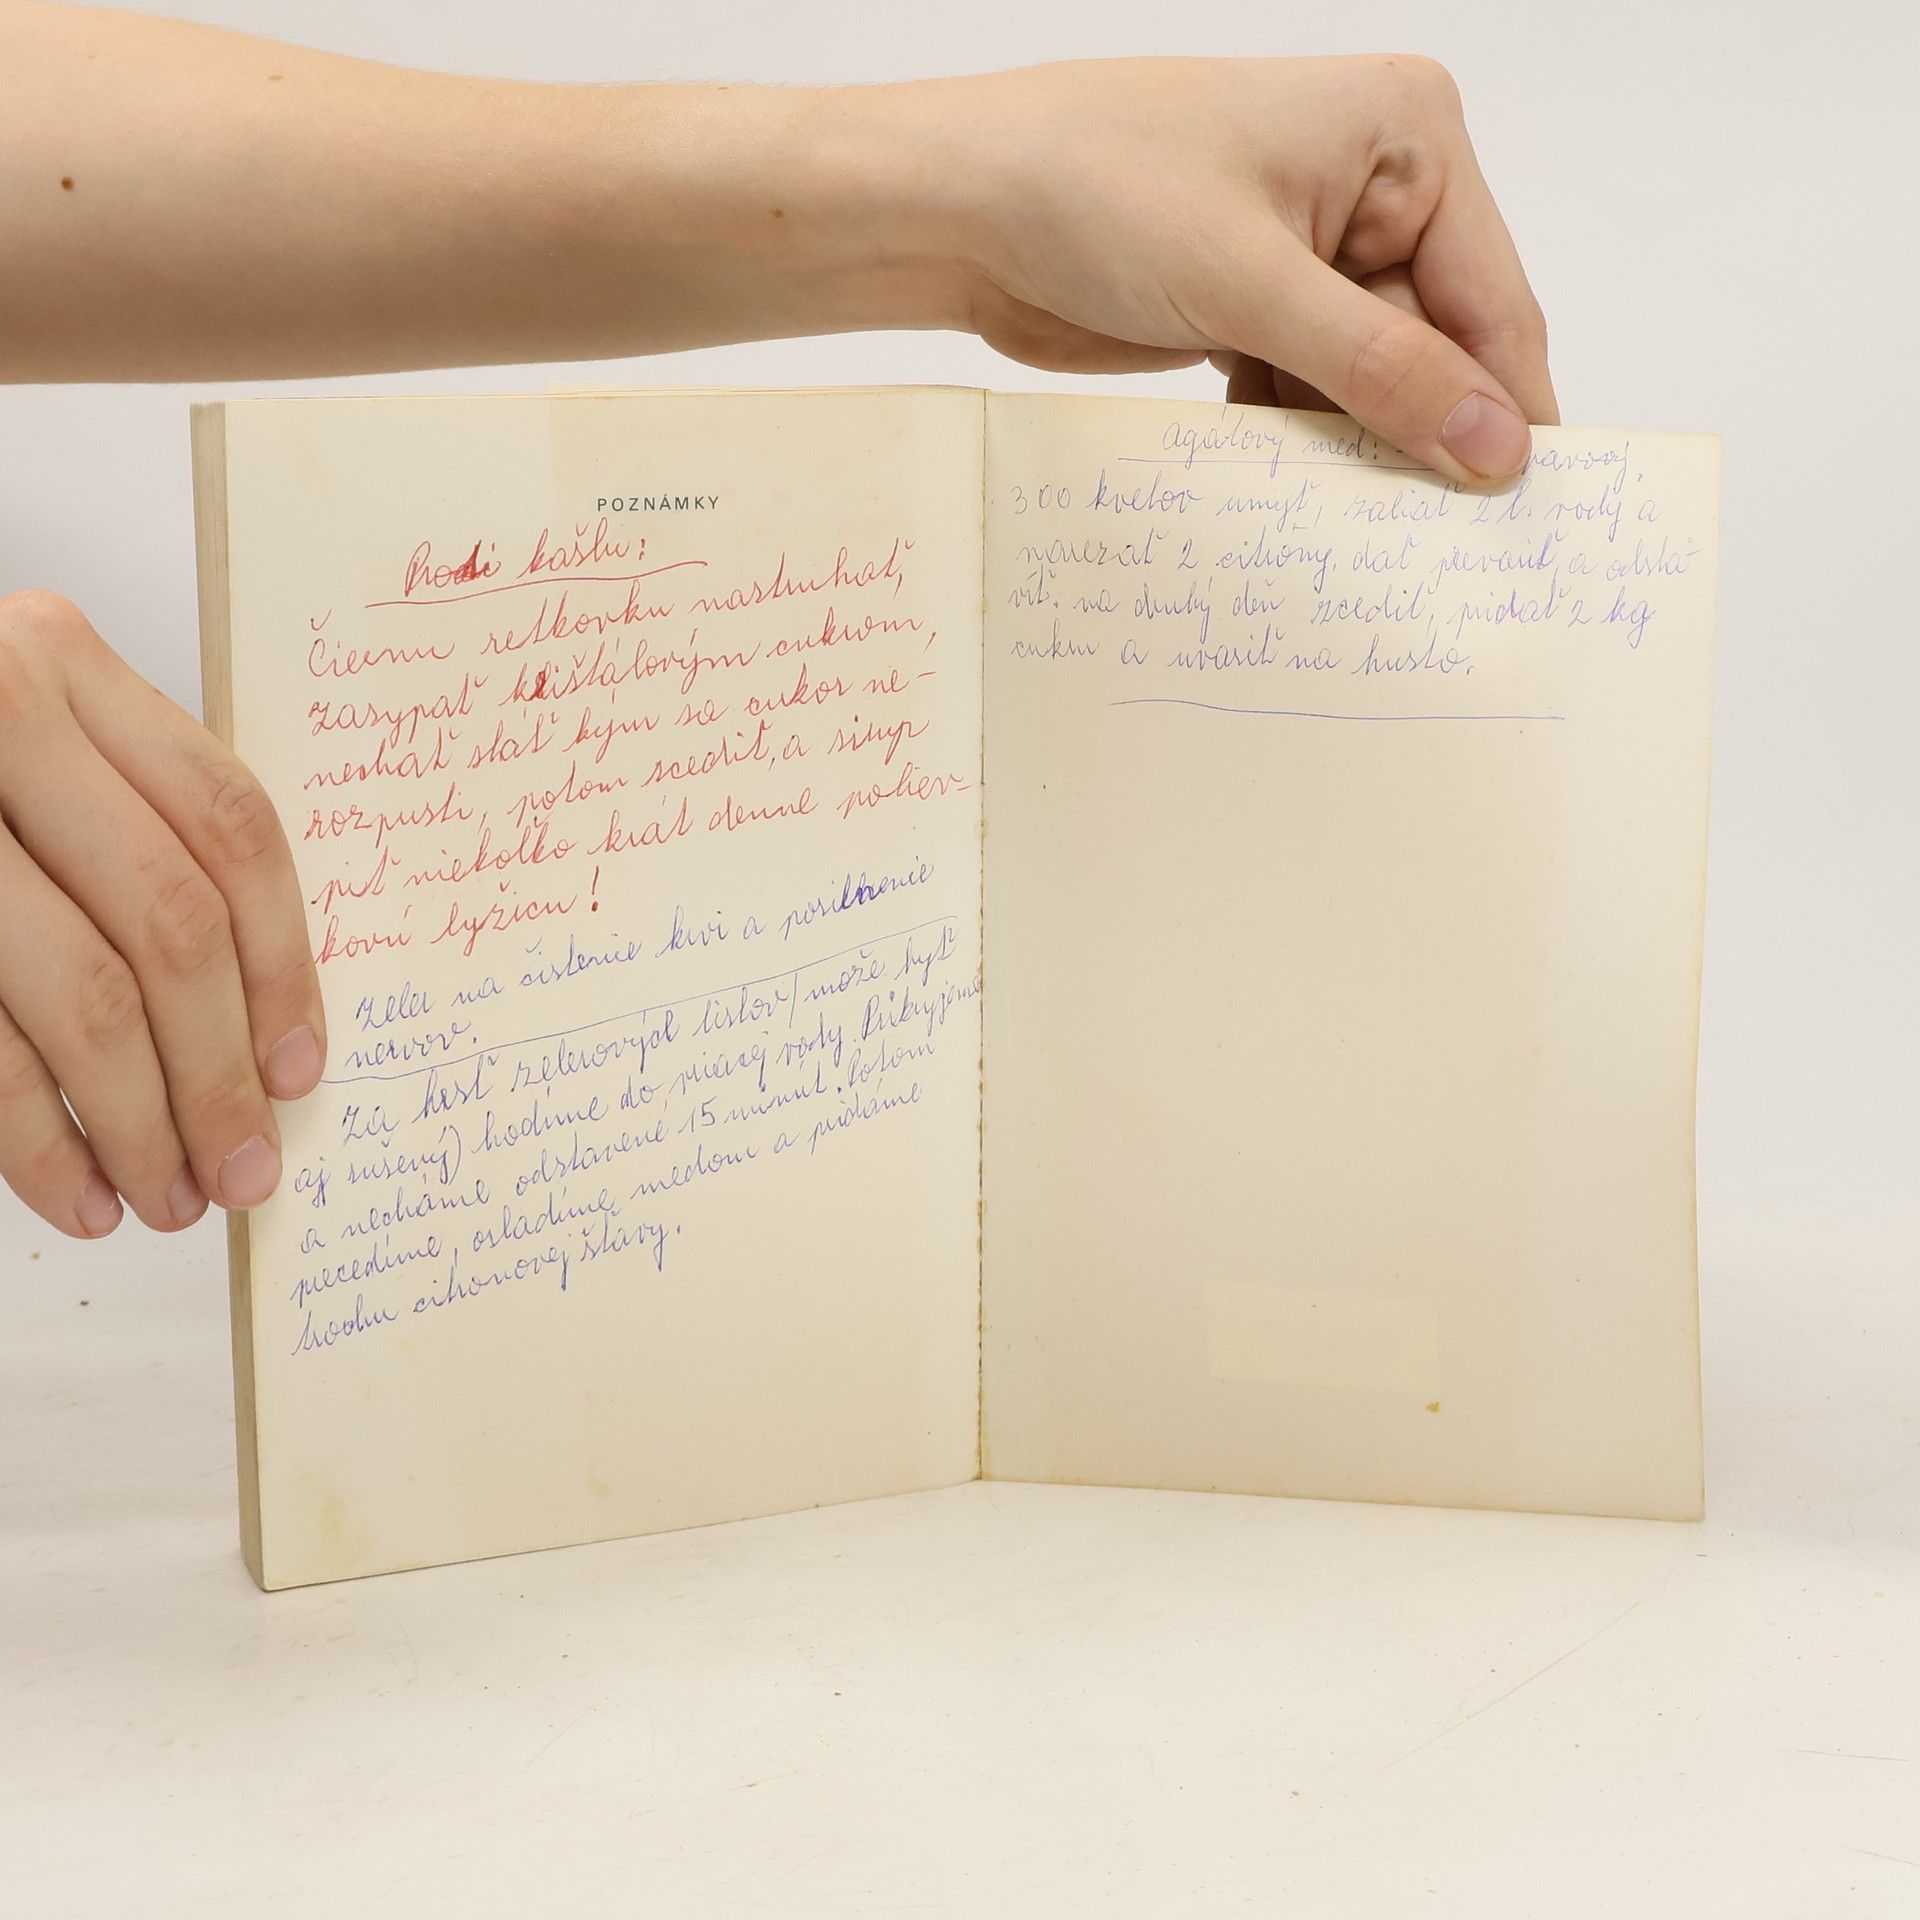 POZNÁMKY
Proti kašlu:
Čiernu retkovku nastruhať,
zasypať krištálovým cukrom,
nechať stáť kým sa cukor ne-
rozpustí, potom scediť, a sirup
piť niekoľko krát denne poliev-
kovú lyžicu!
Zeler na čistenie krvi a posilnenie
nervov.
Za hrsť zelerových listov/može byť
aj sušený) hodíme do vriacej vody. Prikryjeme
a necháme odstavené 15 minút. Potom
precedíme, osladíme medom a pridáme
trochu citronovej šťavy.
agátový med:
300 kvetov umyť, zaliať 2 l. vody a
narezať 2 citróny, dať prevariť, a odsta-
viť. na druhý deň zcediť, pridať 2 kg
cukru a uvariť na husto.